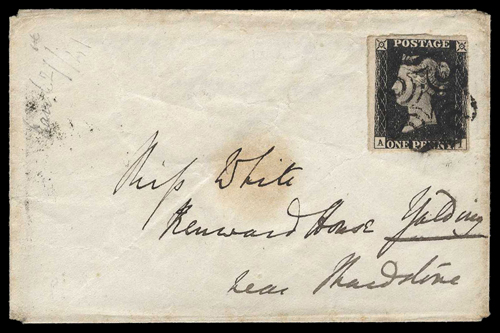 POSTAGE
A ONE PENNY
Miss White
Kenward House Yalding
near Maidstone